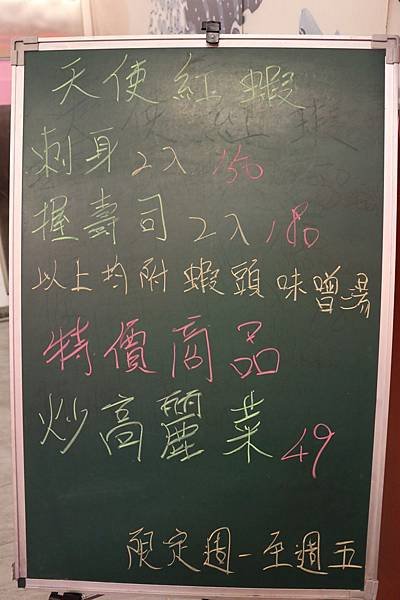 天使紅蝦
刺身2入150
握壽司2入180
以上均附蝦頭味噌湯
特價商品
炒高麗菜49
限定週一至週五